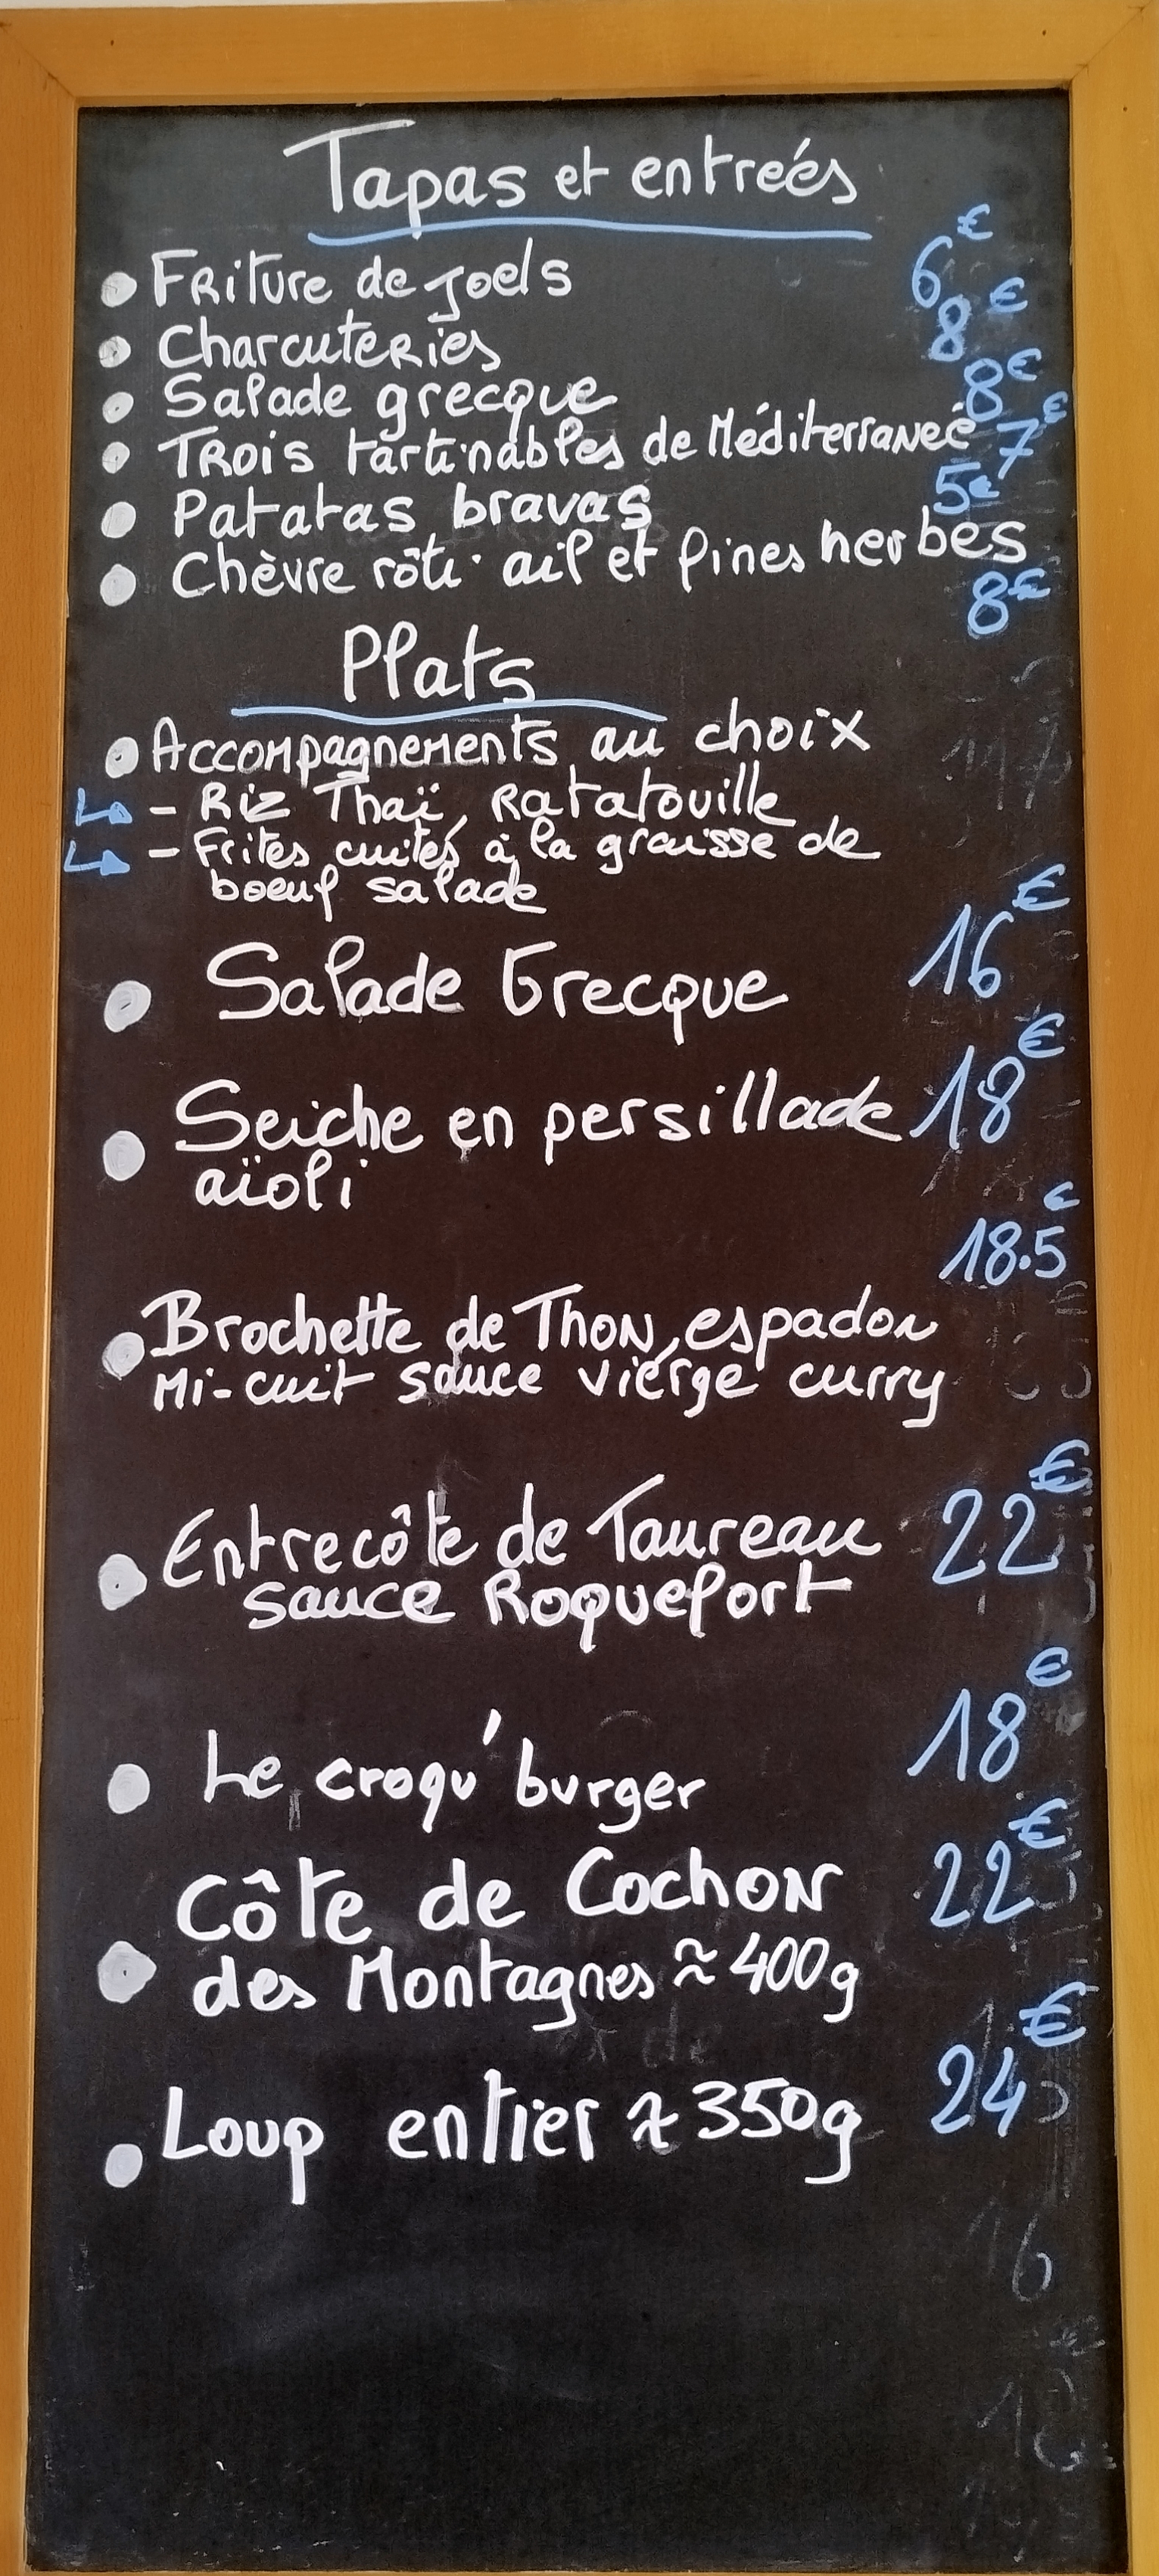 Tapas et entreés
Friture de Joels 6€
Charcuteries 8€
Salade grecque 8€
Trois tartinables de Méditerranée 7€
Patatas bravas 5€
Chèvre rôti ail et fines herbes
8€
Plats
Accompagnements au choix
- Riz Thaï, Ratatouille
- Frites cuites à la graisse de
boeuf salade
Salade Grecque 16€
Seiche en persillade 18€
aïoli
18.5€
Brochette de Thon, espadon
Mi-cuit sauce vierge curry
Entrecôte de Taureau 22€
sauce Roquefort
Le croqu'burger 18€
Côte de Cochon 22€
des Montagnes ≈ 400g
Loup entier ≈ 350g 24€